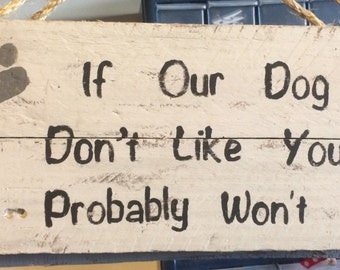 If Our Dog
Don't Like You
Probably Won't